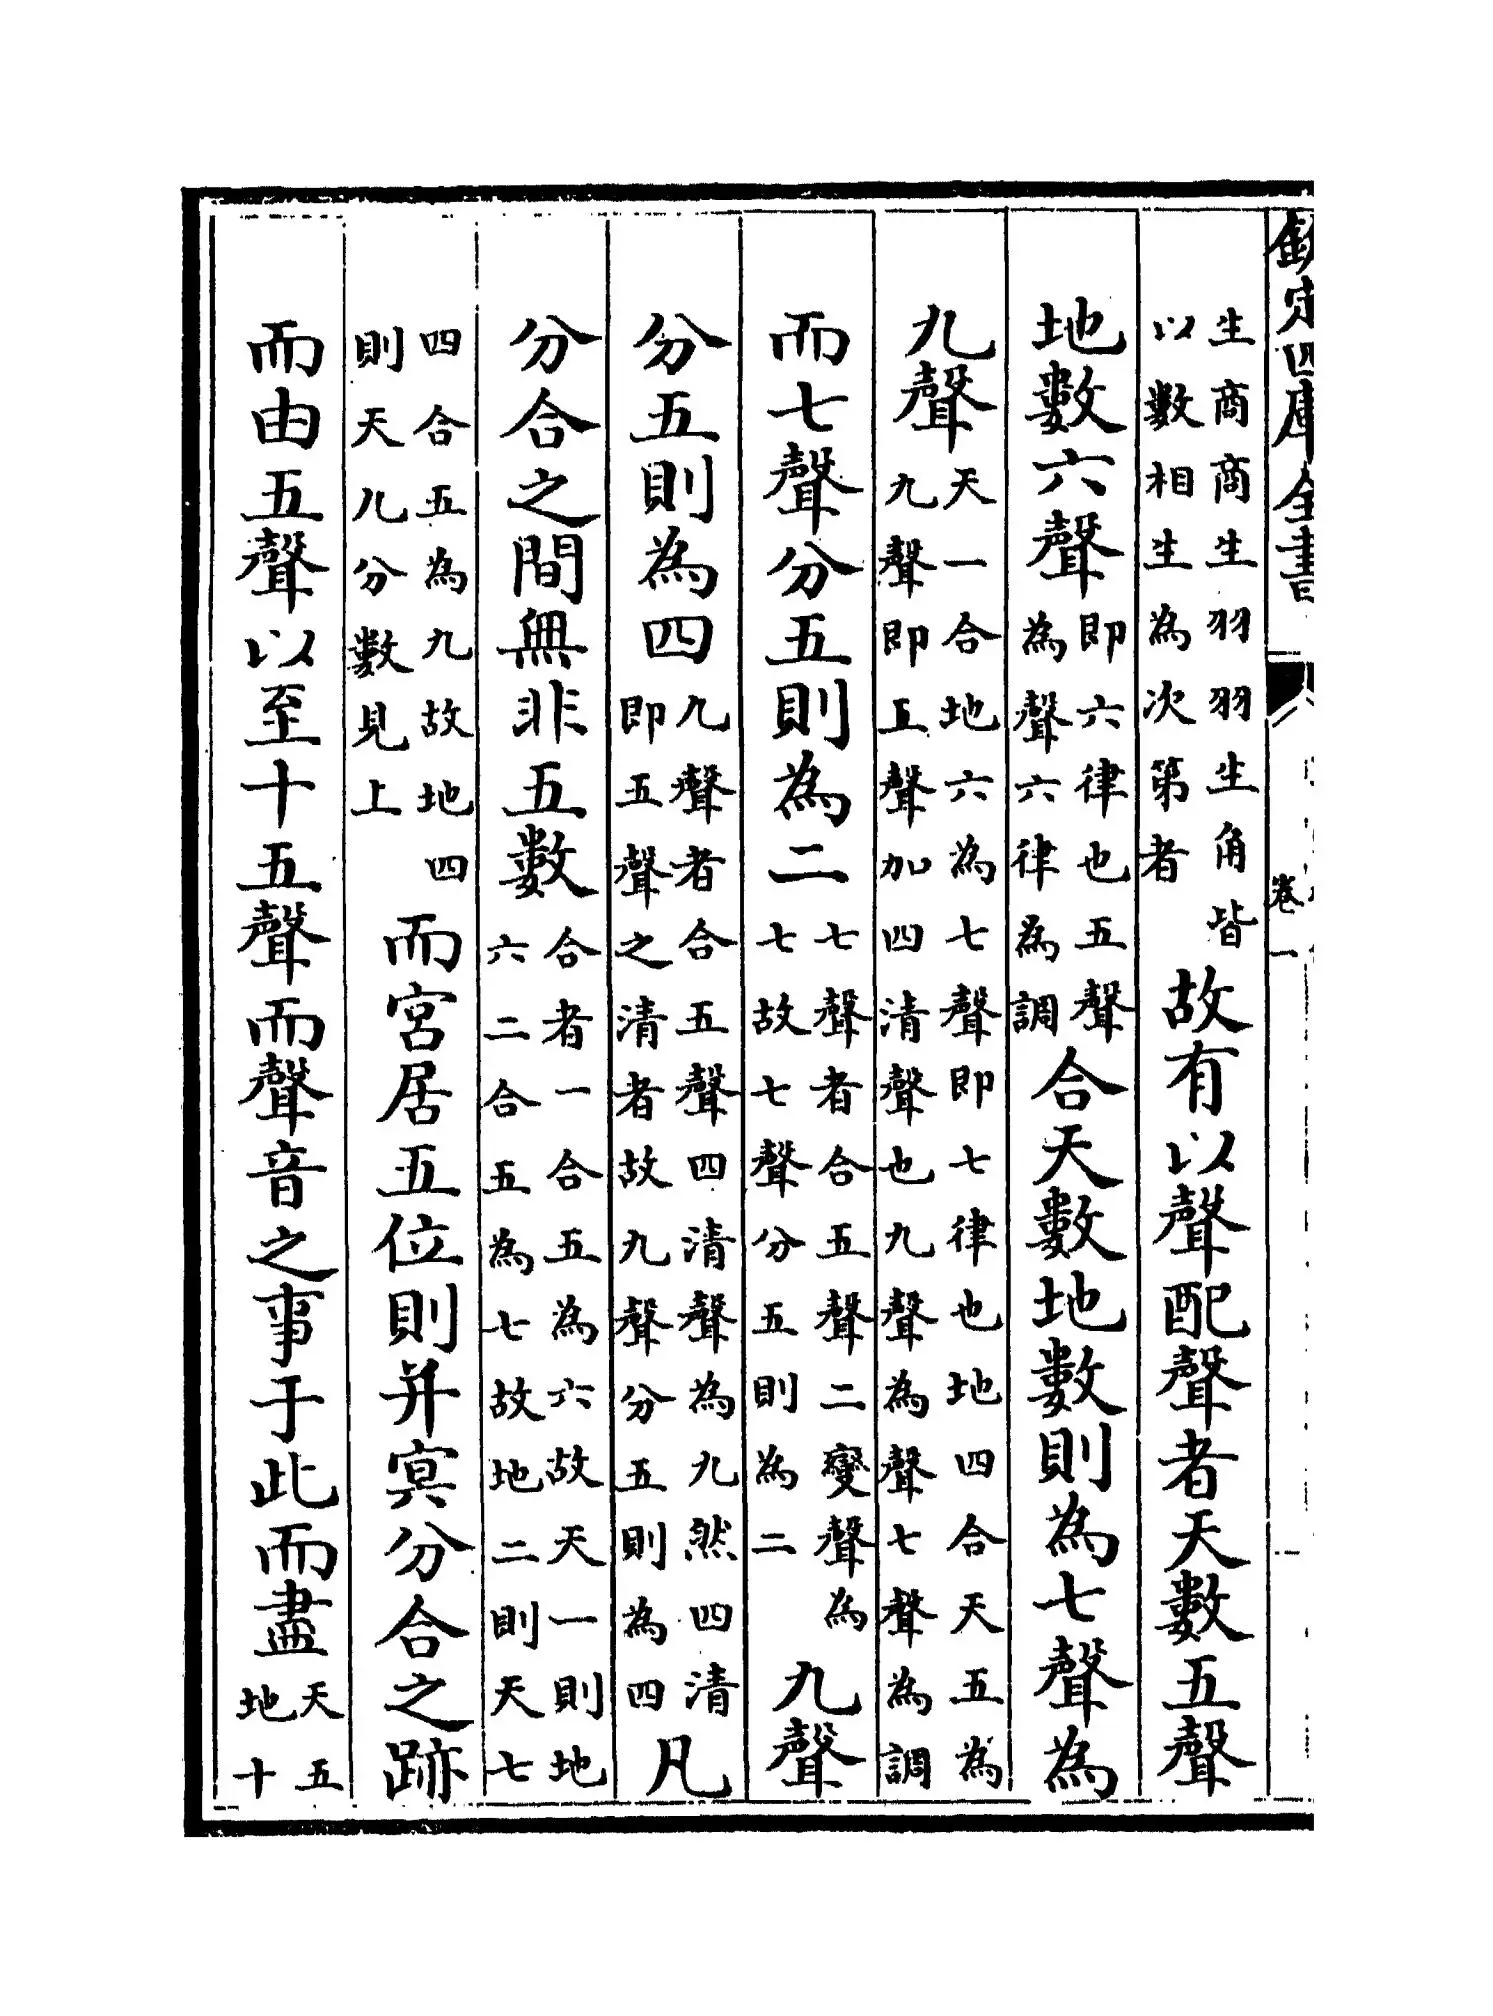 欽定四庫全書
卷一
生商商生羽羽生角皆
以數相生為次第者
故有以聲配聲者天數五聲
地數六聲
即六律也五聲
為聲六律為調
合天數地數則為七聲為
九聲
天一合地六為七聲即七律也地四合天五為
九聲即五聲加四清聲也九聲為聲七聲為調
而七聲分五則為二
七聲者合五聲二變聲為
七故七聲分五則為二
九聲
分五則為四
九聲者合五聲四清聲為九然四清
即五聲之清者故九聲分五則為四
凡
分合之間無非五數
合者一合五為六故天一則地
六二合五為七故地二則天七
四合五為九故地四
則天九分數見上
而宮居五位則并㝠分合之跡
而由五聲以至十五聲而聲音之事于此而盡
天五
地十